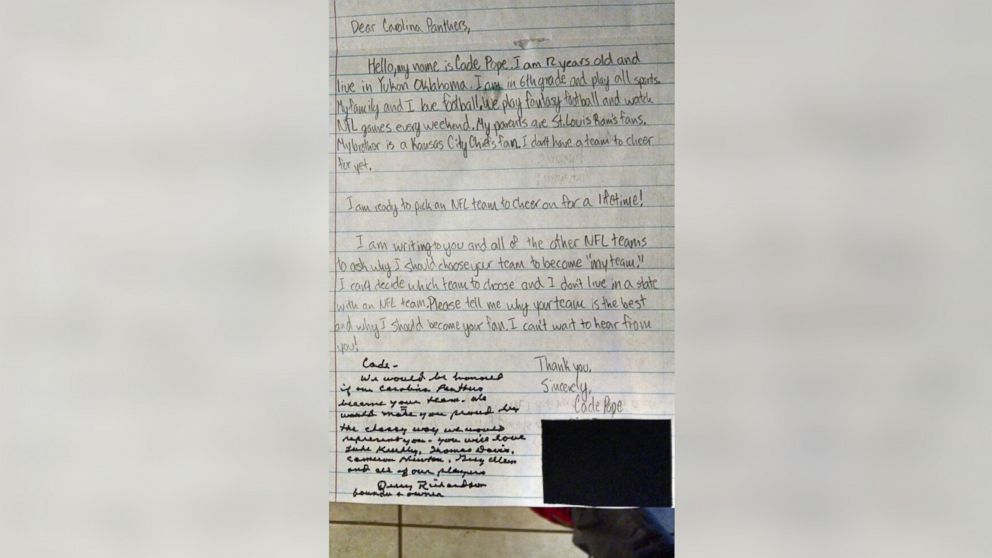 Dear Carolina Panthers,
Hello, my name is Cade Pope. I am 12 years old and
live in Yukon Oklahoma. I am in 6th grade and play all sports.
My family and I love football. We play fantasy football and watch
NFL games every weekend. My parents are St. Louis Ram's fans.
My brother is a Kansas City Chiefs fan. I don't have a team to cheer
for yet.
I am ready to pick an NFL team to cheer on for a lifetime!
I am writing to you and all of the other NFL teams
to ask why I should choose your team to become "my team."
I can't decide which team to choose and I don't live in a state
with an NFL team. Please tell me why your team is the best
and why I should become your fan. I can't wait to hear from
you!
Thank you,
Sincerely,
Cade Pope
Cade-
We would be honored
if our Carolina Panthers
became your team. We
would make you proud by
the classy way we would
represent you. You will love
Luke Kuechly, Thomas Davis,
Cameron Newton, Greg Olsen
and all of our players
Jerry Richardson
founder & owner